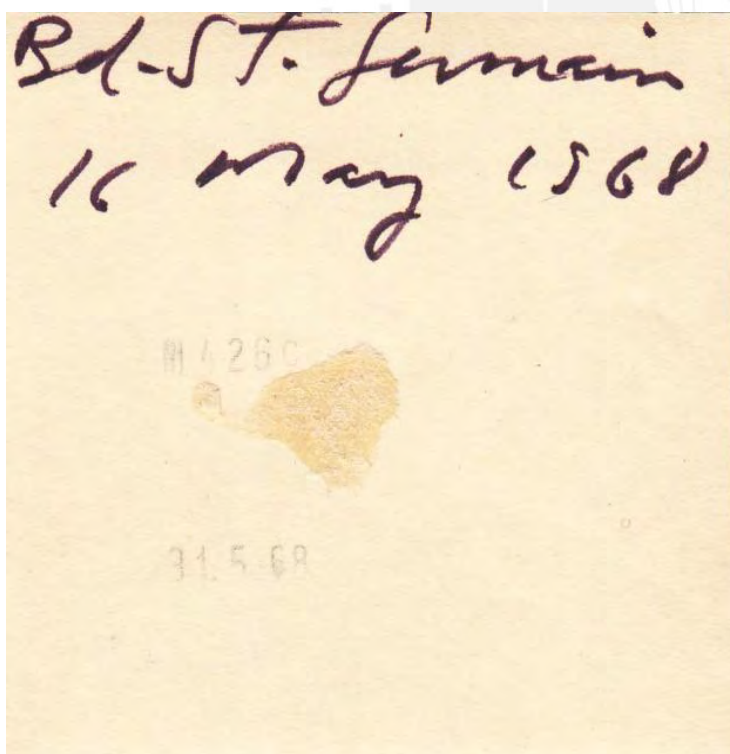 Bd. St. Germain
16 May 1968
M426C
31.5.68